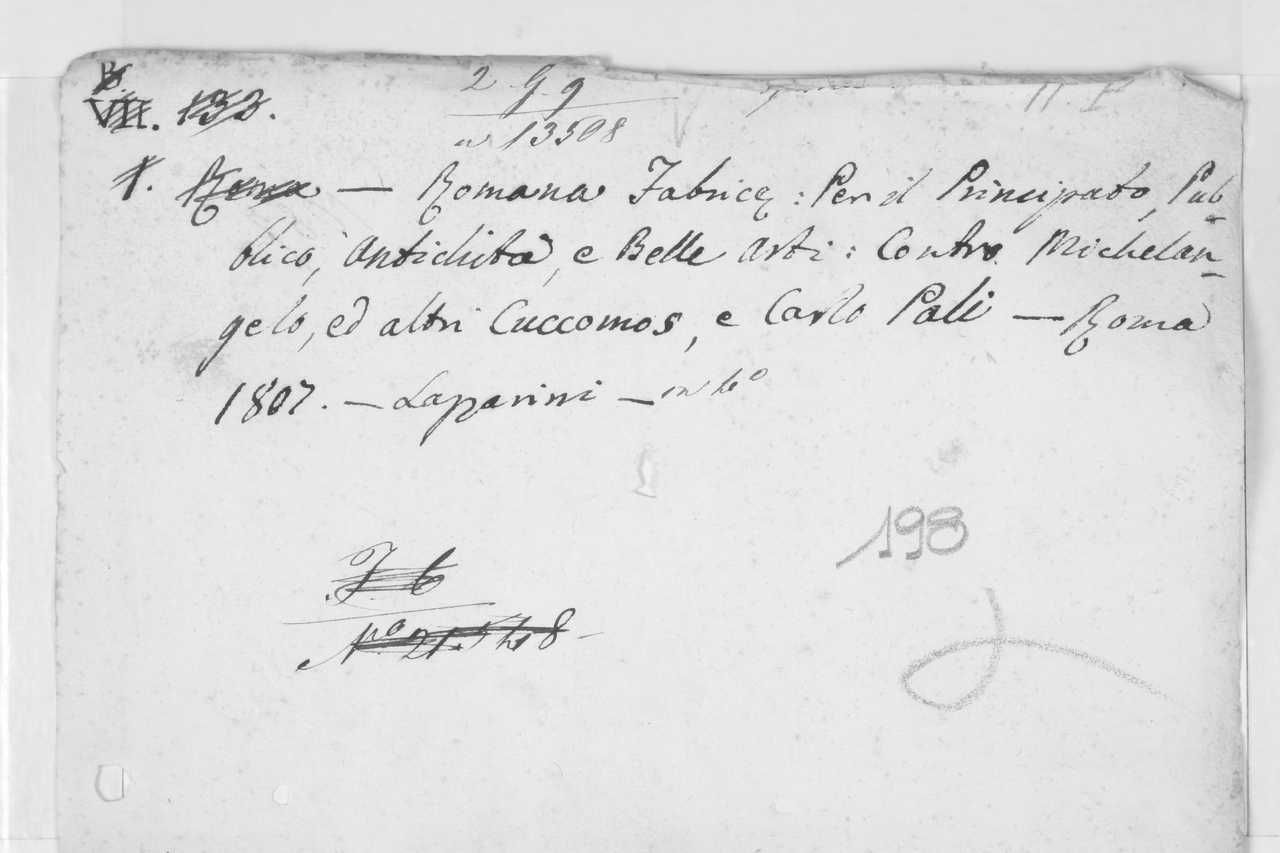 B.
VII. 132.
2 G g
n 13508
1. Roma — Romana Fabricę : Per il Principato, Pub-
blico, Antichità, e Belle Arti : Contro Michelan-
gelo, ed altri Cuccomos, e Carlo Pali — Roma
1807. — Lazzarini — in 4o
198
No 21. 548